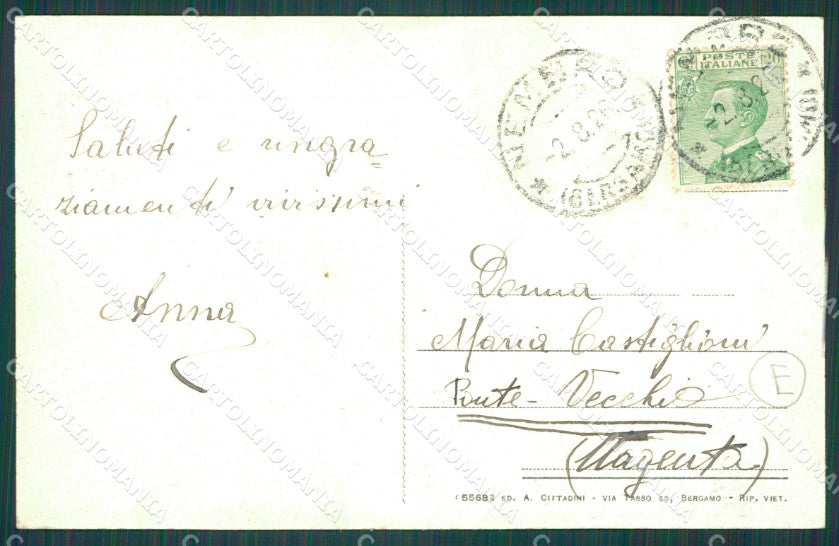 Saluti e ringra=
ziamenti vivissimi
Anna
NEMBRO
2.8.26
(BERGAMO)
POSTE
ITALIANE
Donna
Maria Castiglioni
Ponte-Vecchio
(Magenta)
E
55682 ED. A. CITTADINI - VIA TASSO 50, BERGAMO - RIP. VIET.
CARTOLINOMANIA